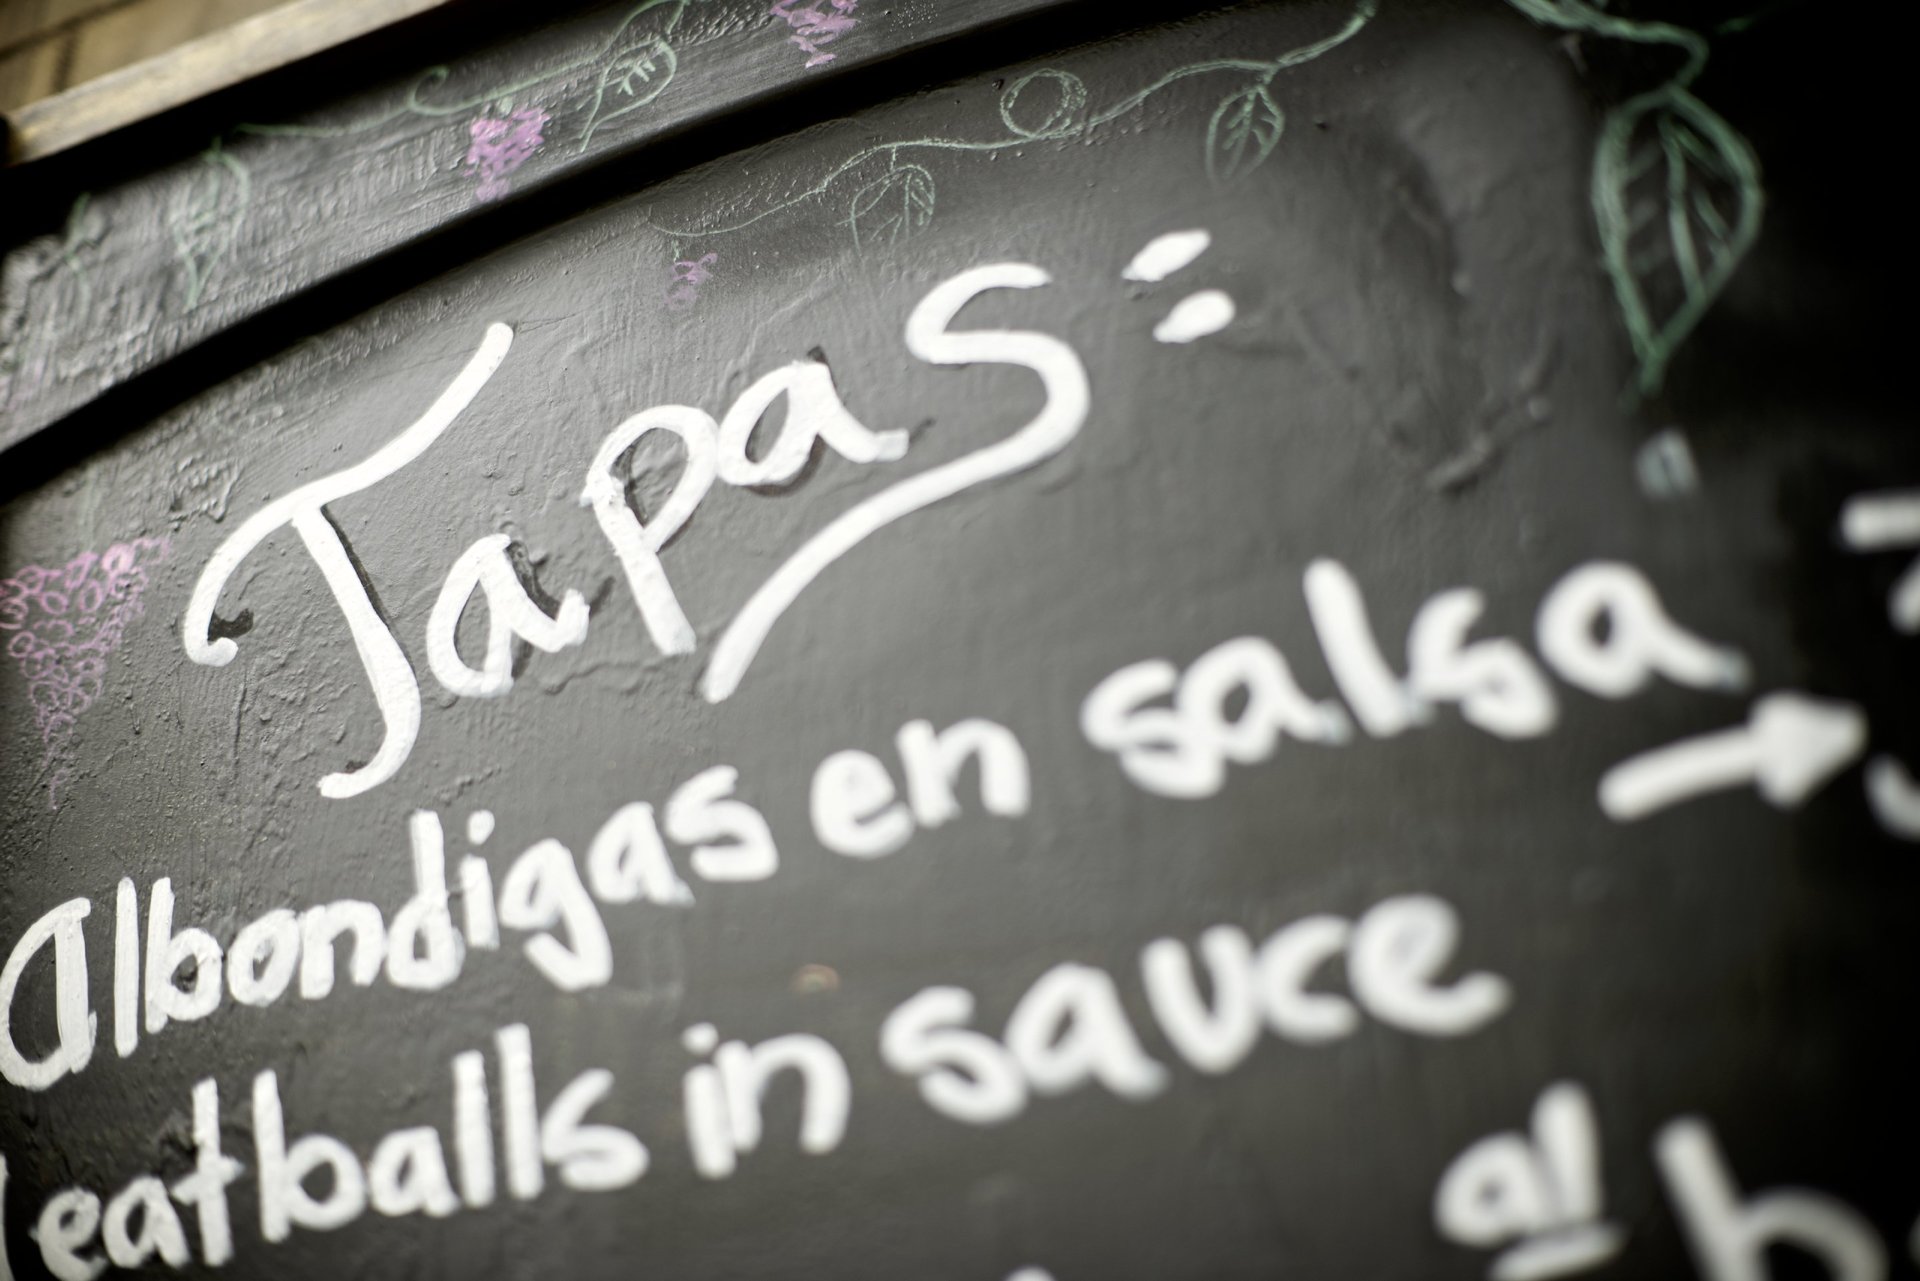 Tapas:
Albondigas en salsa →
eatballs in sauce
al